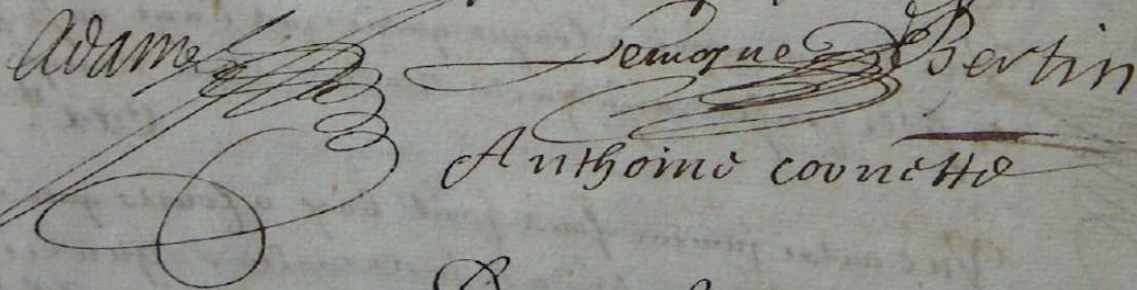 Adam Lemoyne Bertin
Anthoine cornette